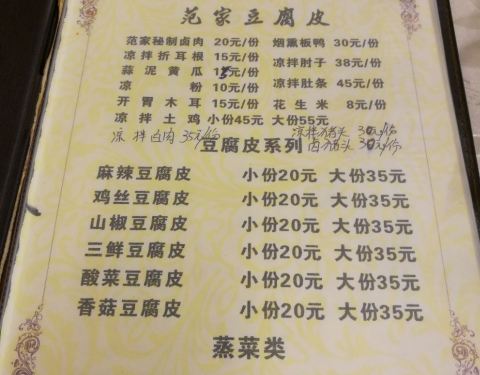 范家豆腐皮
范家秘制卤肉 20元/份 烟熏板鸭 30元/份
凉拌折耳根 15元/份 凉拌肘子 38元/份
蒜泥黄瓜 元/份 凉拌肚条 45元/份
凉粉 10元/份 花生米 8元/份
开胃木耳 15元/份
凉拌土鸡 小份45元 大份55元
凉拌卤肉 35元/份 凉拌猪头 30元/份
豆腐皮系列 肉 30元/份
麻辣豆腐皮 小份20元 大份35元
鸡丝豆腐皮 小份20元 大份35元
山椒豆腐皮 小份20元 大份35元
三鲜豆腐皮 小份20元 大份35元
酸菜豆腐皮 小份20元 大份35元
香菇豆腐皮 小份20元 大份35元
蒸菜类